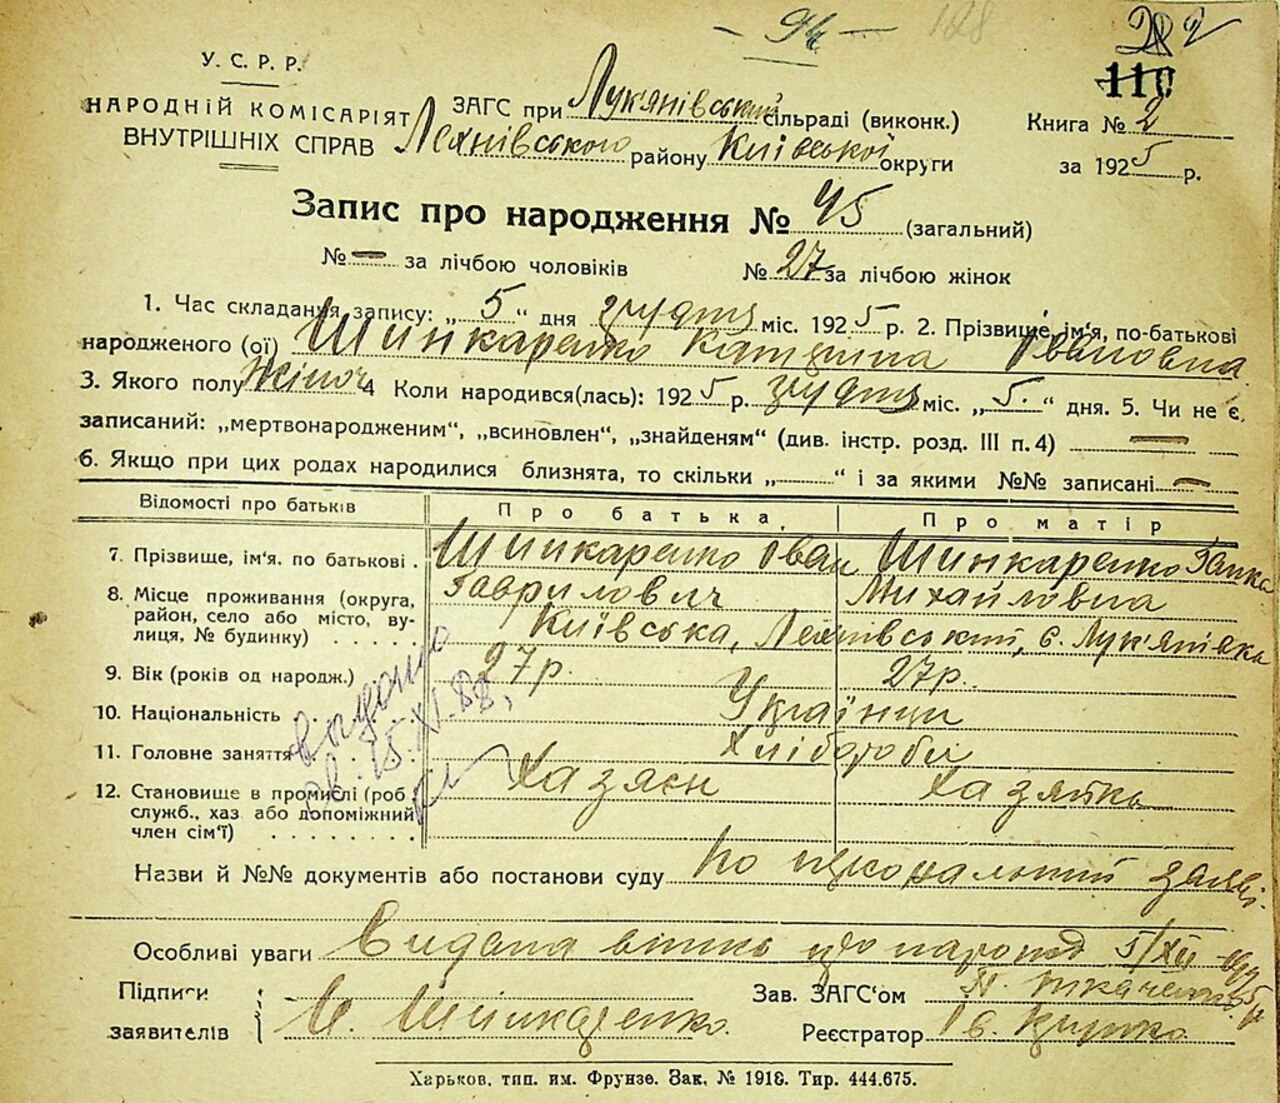 — 94 — 128
22
110
У. С. Р. Р.
НАРОДНІЙ КОМІСАРІЯТ
ВНУТРІШНІХ СПРАВ
ЗАГС при Лук'янівський сільраді (виконк.)
району Київської округи
Книга № 2
за 1925 р.
Запис про народження № 45 (загальний)
№ — за лічбою чоловіків № 27 за лічбою жінок
1. Час складання запису: „ 5 “ дня грудня міс. 1925 р. 2. Прізвище, ім'я, по-батькові
народженого (ої) Шинкаренко Катерина Івановна
3. Якого полу Жіноч 4 Коли народився(лась): 1925 р. грудня міс. „ 5. “ дня. 5. Чи не є
записаний: „мертвонародженим“, „всиновлен“, „знайденям“ (див. інстр. розд. III п. 4) —
6. Якщо при цих родах народилися близнята, то скільки „ “ і за якими №№ записані —
Відомості про батьків Про батька, Про матір
7. Прізвище, ім'я, по батькові . Шинкаренко Іван Шинкаренко Ганка
Гаврилович Михайловна
8. Місце проживання (округа,
район, село або місто, ву-
лиця, № будинку) . . . . Київська, с. Лук'янівка
9. Вік (років од народж.) 27р. 27р.
10. Національність . . . . Українци
11. Головне заняття . . . . Хлібороби
12. Становище в промислі (роб.
служб., хаз або допоміжний
член сім'ї) . . . . . . . Хазяєн Хазяйка
видано
св. 15 XI. 88,
Назви й №№ документів або постанови суду По персональній заяві.
Особливі уваги Видана витка про народ 5/XII – 1925 р
Підписи
заявителів И. Шинкаренко.
Зав. ЗАГС‘ом
Реєстратор
Харьков, тип. им. Фрунзе. Зак. № 1918. Тир. 444.675.